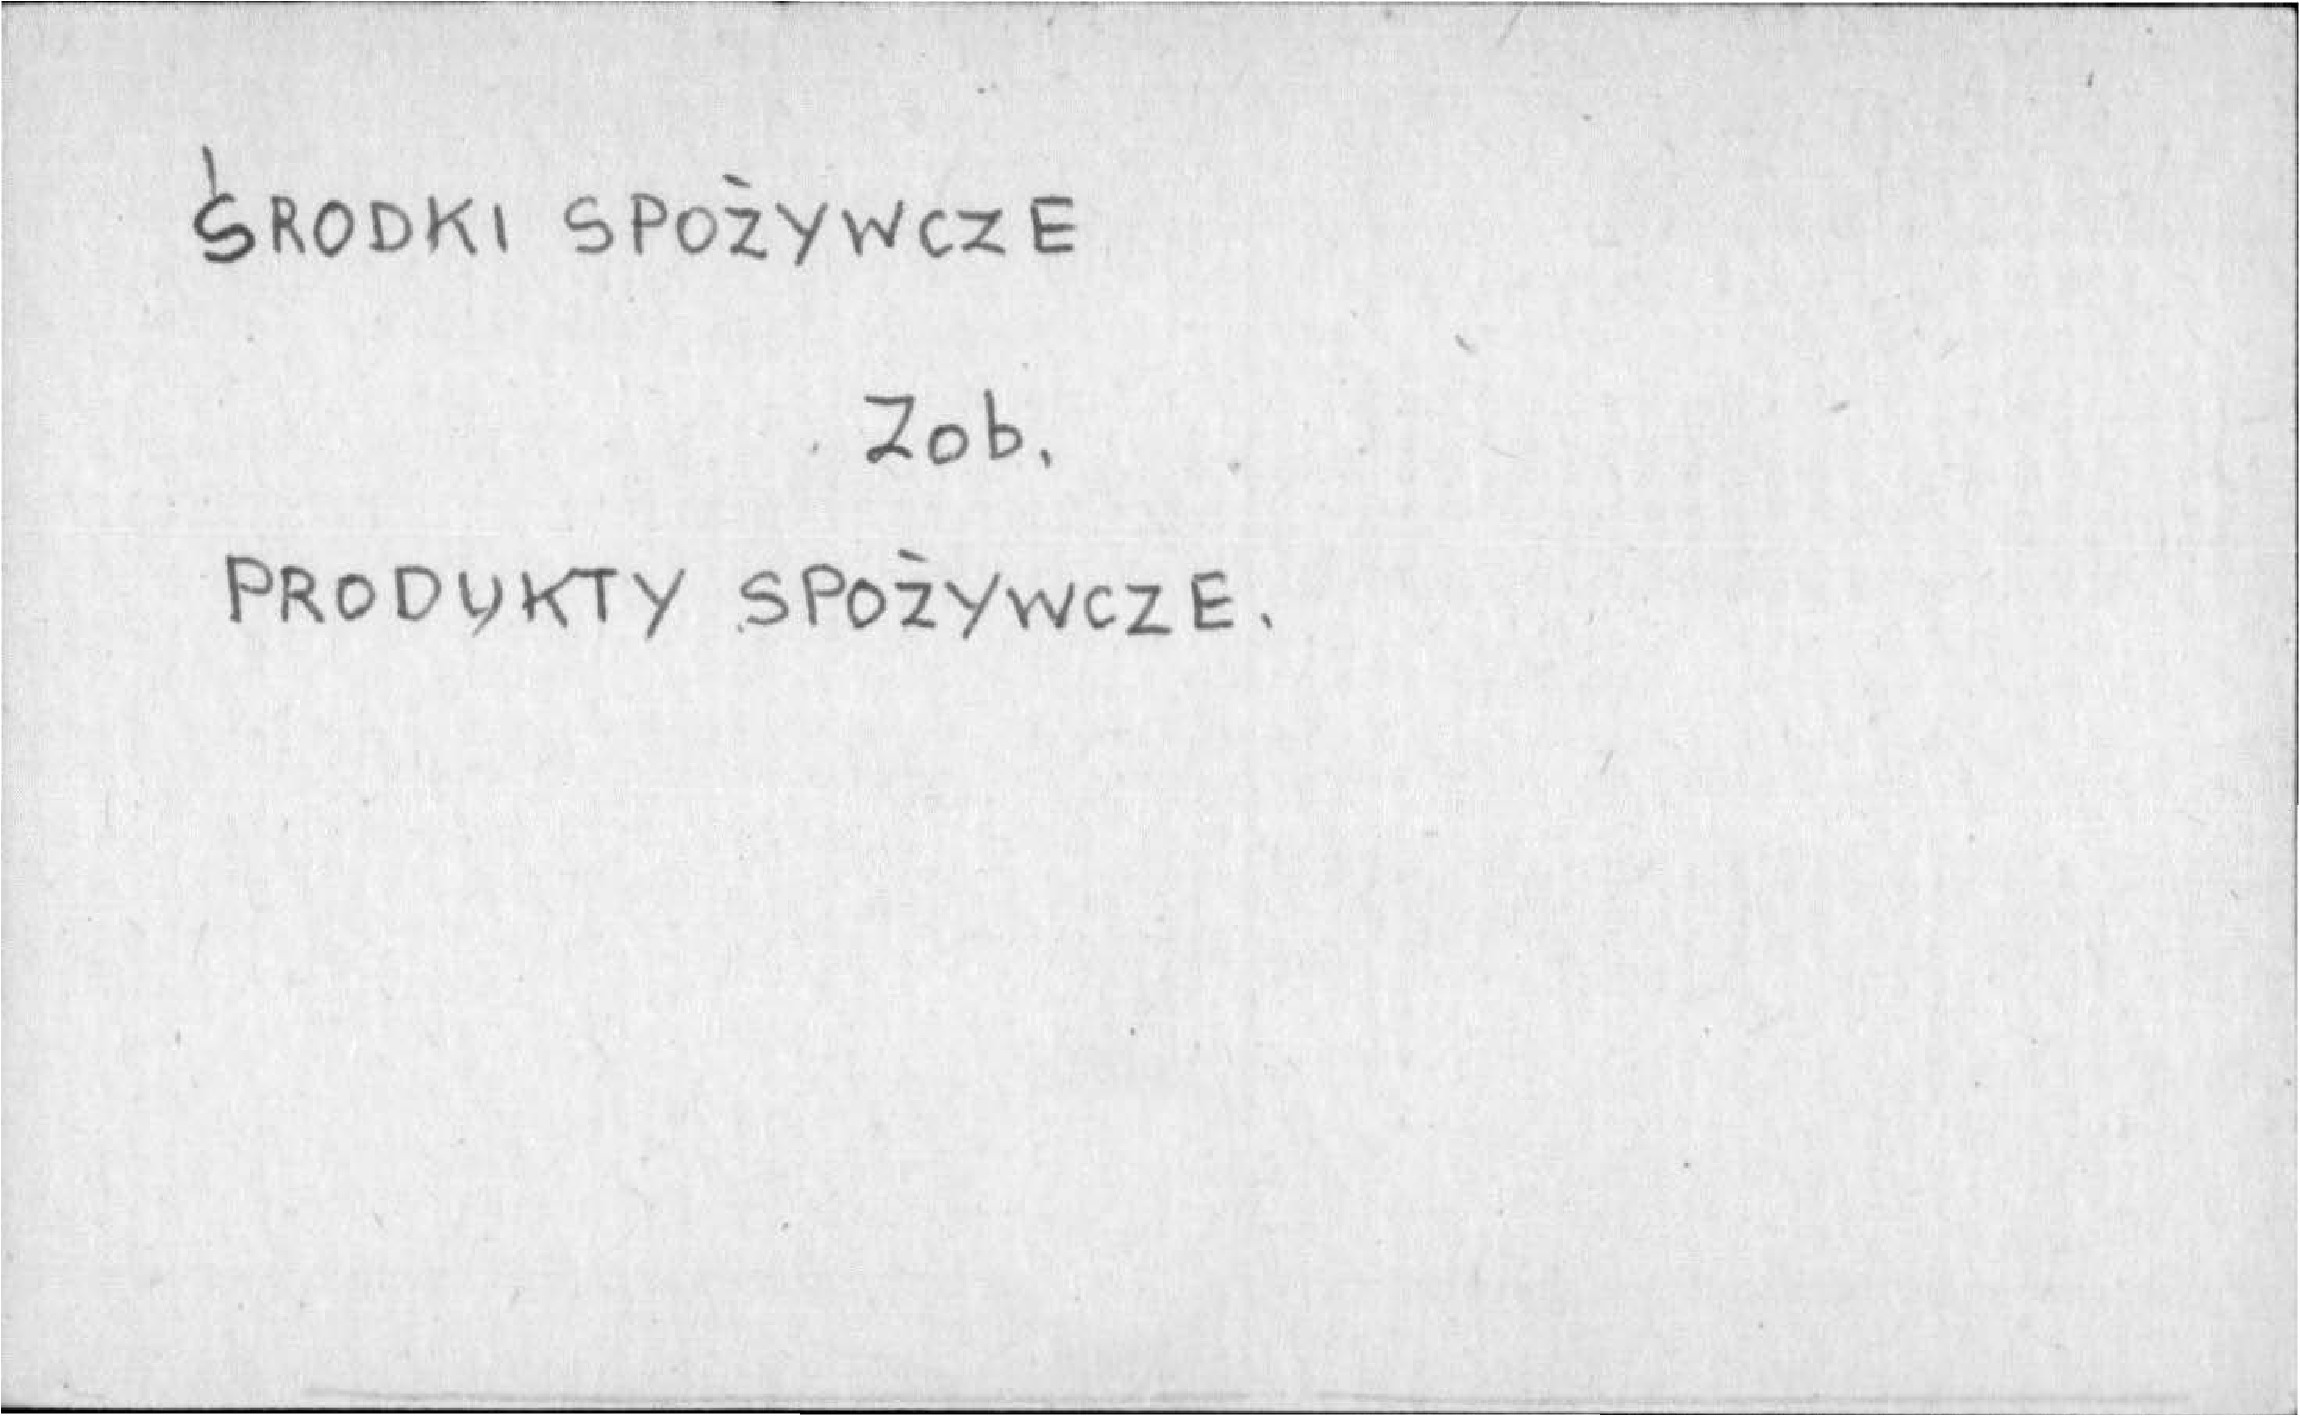 ŚRODKI SPOŻYWCZE
Zob.
PRODUKTY SPOŻYWCZE.